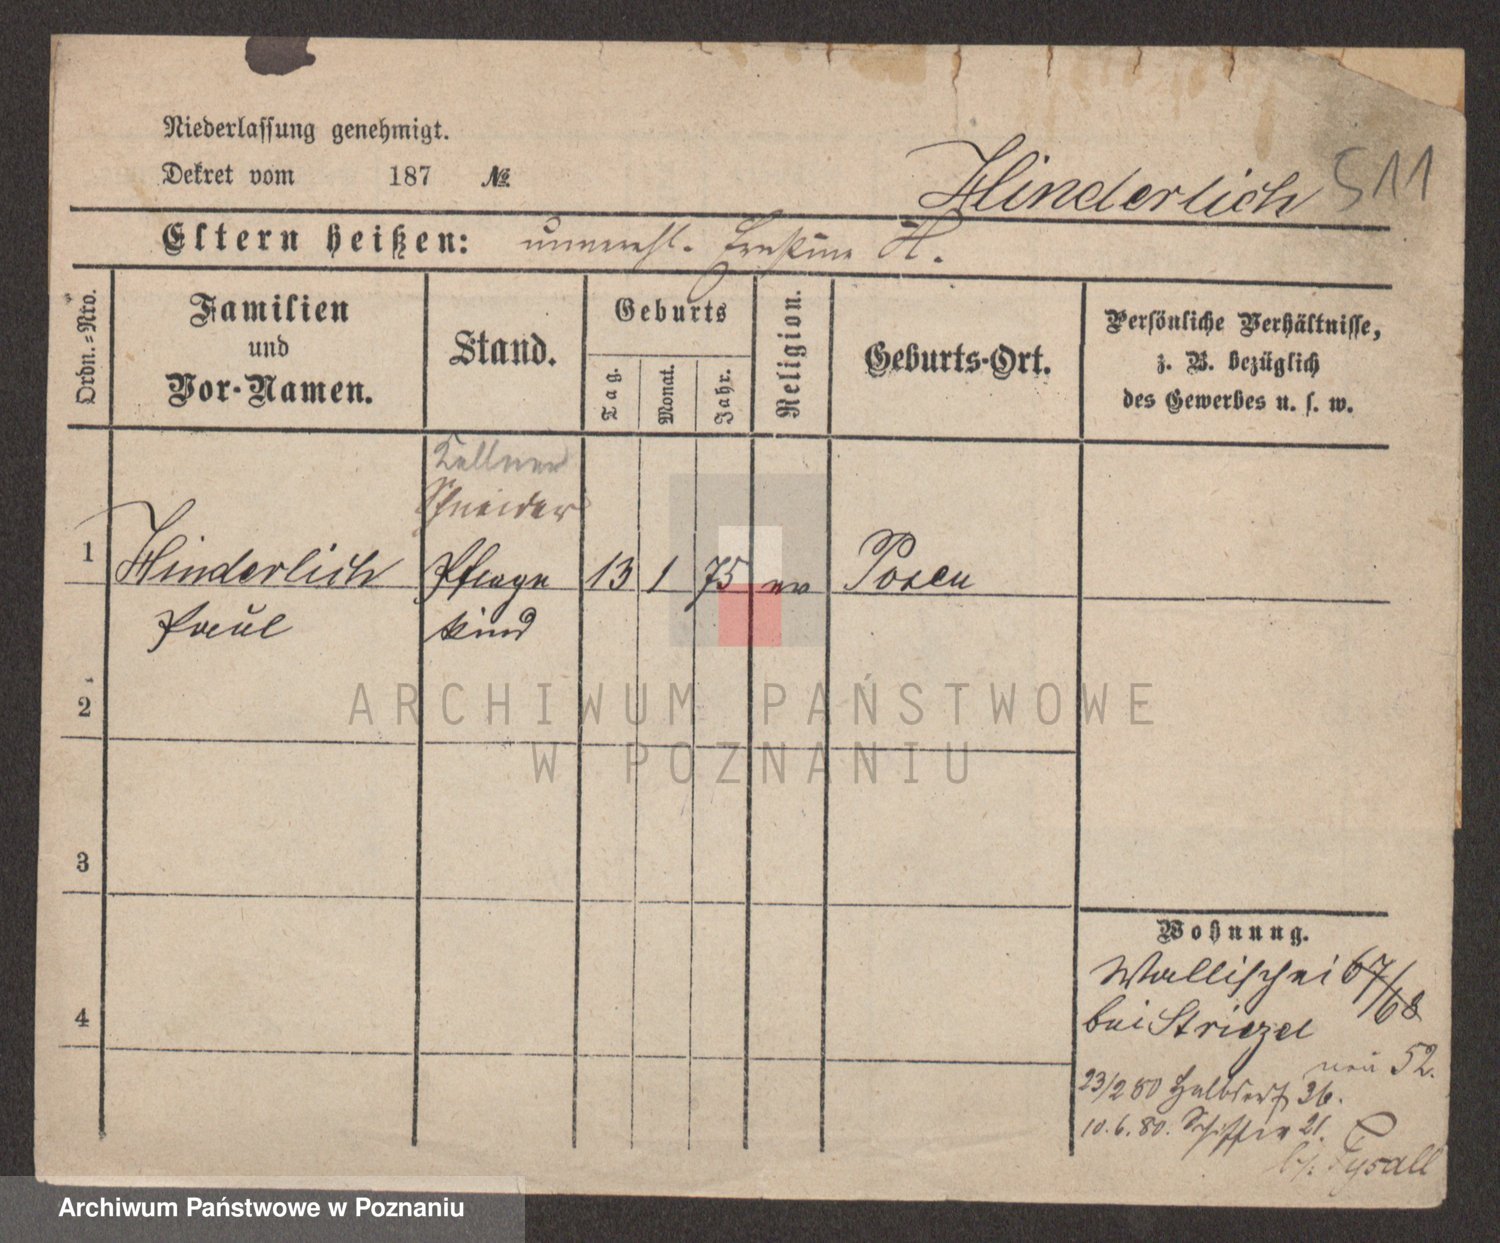 Niederlassung genehmigt.
Dekret vom 187 №
Hinderlich 511
Eltern heißen: unverehl. Ernstine H.
Ordn.=Nro.
Familien und Vor-Namen.
Stand.
Geburts
Tag.
Monat.
Jahr.
Religion.
Geburts-Ort.
Persönliche Verhältnisse,
z. B. bezüglich
des Gewerbes u. s. w.
Kellner
Schneider
1 Hinderlich Pflege 13 1 75 ev Posen
Paul kind
2
3
4
Wohnung.
Wallischei 67/68
bei Striezel
neu 52.
23/2 80 Halbdorf 36.
10.6.80. Schiffer 21.
b/.
ARCHIWUM PAŃSTWOWE
W POZNANIU
Archiwum Państwowe w Poznaniu